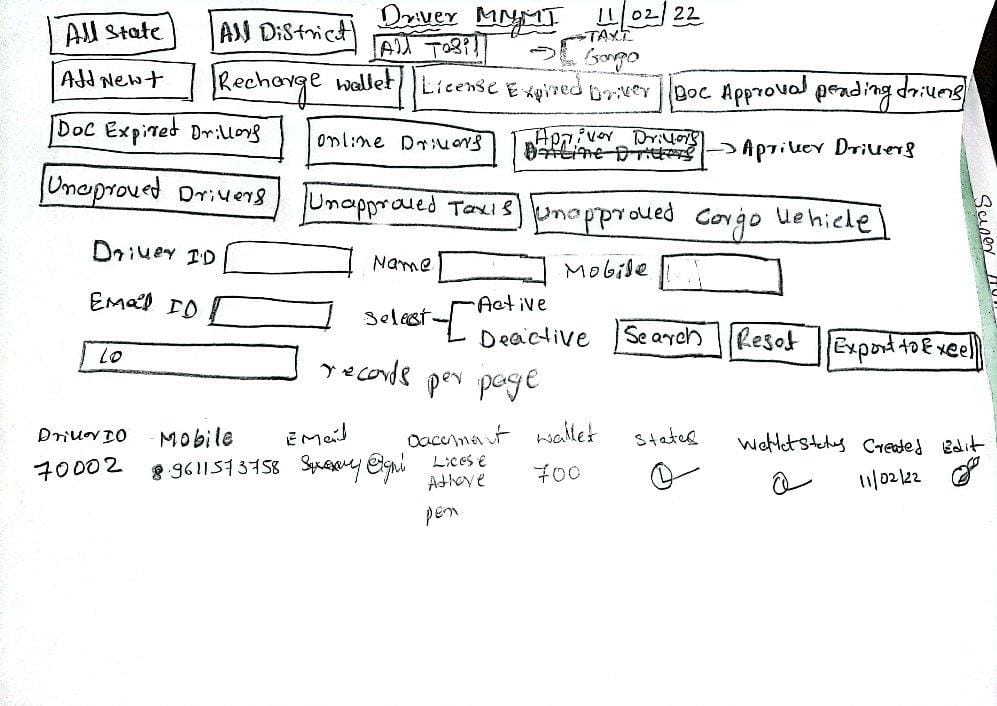 All State All District Driver MNMT 11/02/22
All Tosil TAXI
Gorgo
Add New + Recharge wallet License Expired Driver Doc Approval pending drivers
Doc Expired Drivers Online Drivers Appriver Drivers Online Drivers → Apriver Drivers
Unaproved Drivers Unapproved Taxis Unapproved Corgo Vehicle
Driver ID Name Mobile
Email ID Select Active
Deactive Search Reset Export to Excel
10 records per page
Driver ID Mobile EMail Wallet States Wallet Created Edit
70002 9611573758 License 700 11/02/22
pen
Super